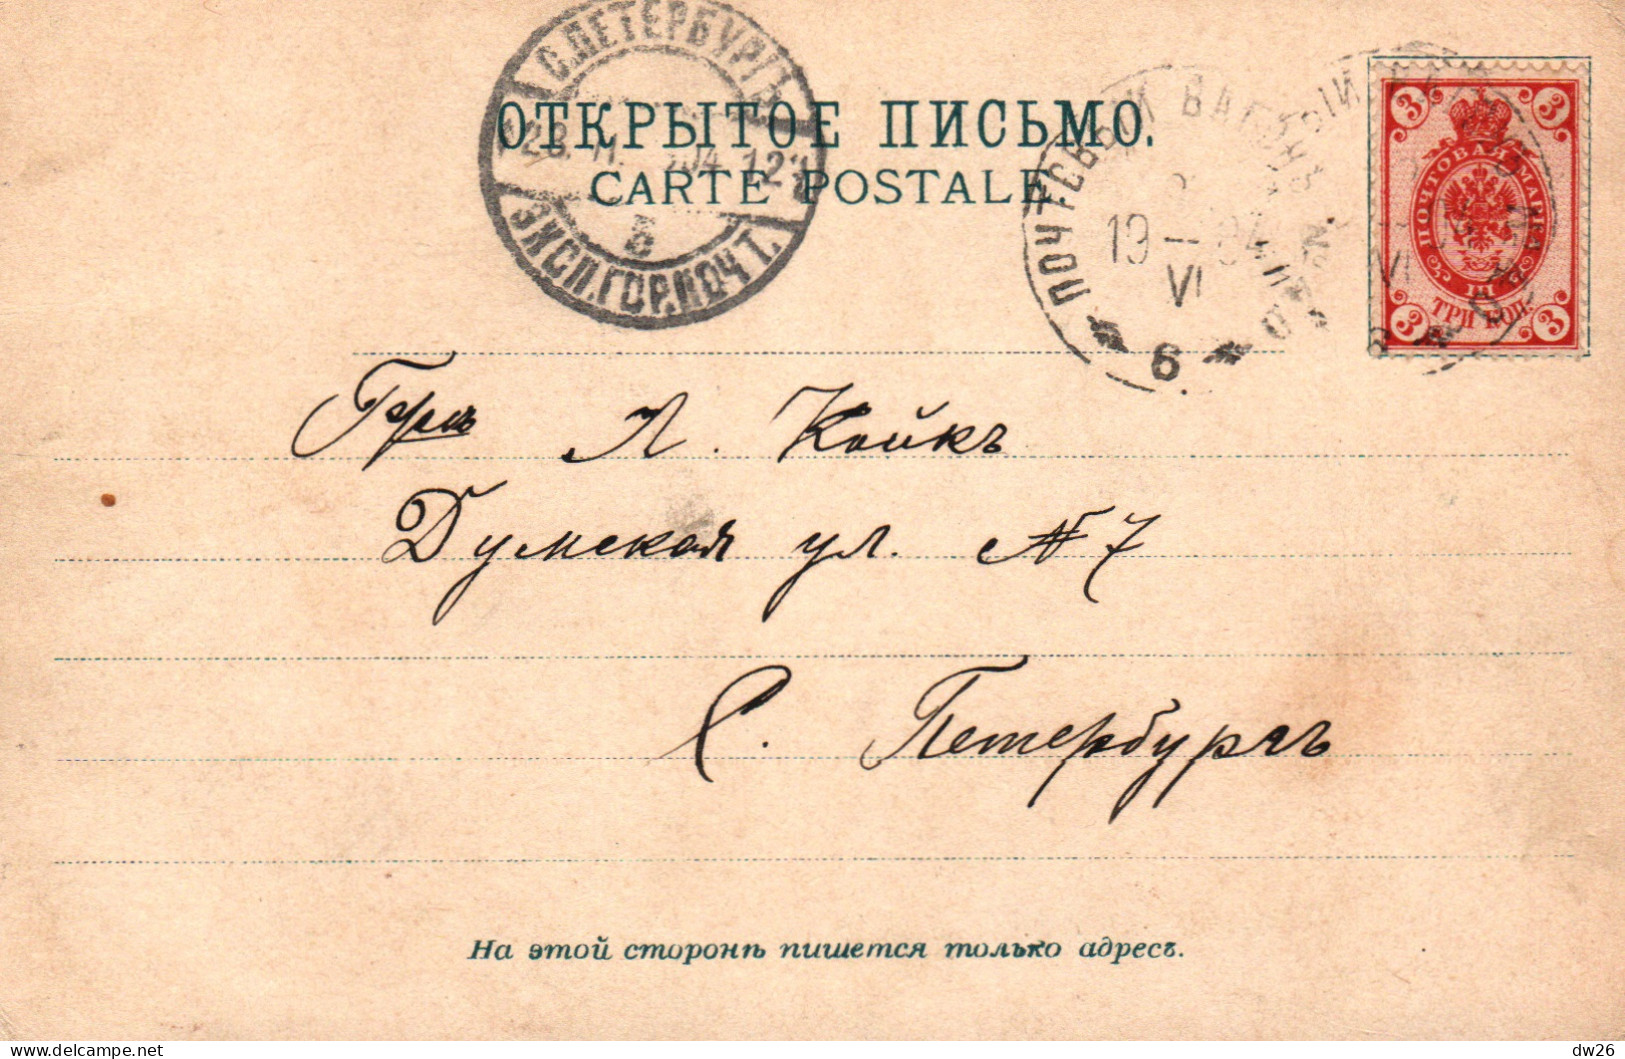 С.ПЕТЕРБУРГЪ
ЭКСП.ГОР.ПОЧТ.
5
ОТКРЫТОЕ ПИСЬМО.
CARTE POSTALE
ПОЧТОВЫЙ ВАГОНЪ
VI
6
3 3
ПОЧТОВАЯ МАРКА
ТРИ КОП.
3 3
Л. Койкъ
Думская ул. № 7
С. Петербургъ
На этой сторонѣ пишется только адресъ.
dw26